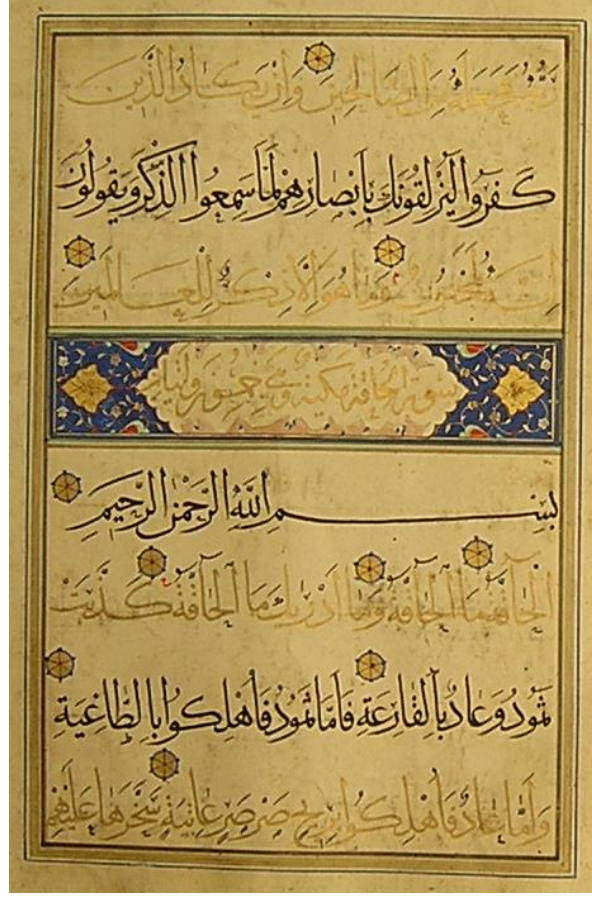 رَبُّهُ فَجَعَلَهُ مِنَ الصَّالِحِينَ وَإِنْ يَكَادُ الَّذِينَ
كَفَرُوا لَيُزْلِقُونَكَ بِأَبْصَارِهِمْ لَمَّا سَمِعُوا الذِّكْرَ وَيَقُولُونَ
إِنَّهُ لَمَجْنُونٌ وَمَا هُوَ إِلَّا ذِكْرٌ لِلْعَالَمِينَ
سورة الحاقة مكية وهي خمسون واثنتان
بِسْمِ اللَّهِ الرَّحْمَنِ الرَّحِيمِ
اَلْحَاقَّةُ مَا الْحَاقَّةُ وَمَا أَدْرَيكَ مَا الْحَاقَّةُ كَذَّبَتْ
ثَمُودُ وَعَادٌ بِالْقَارِعَةِ فَأَمَّا ثَمُودُ فَأُهْلِكُوا بِالطَّاغِيَةِ
وَأَمَّا عَادٌ فَأُهْلِكُوا بِرِيحٍ صَرْصَرٍ عَاتِيَةٍ سَخَّرَهَا عَلَيْهِمْ